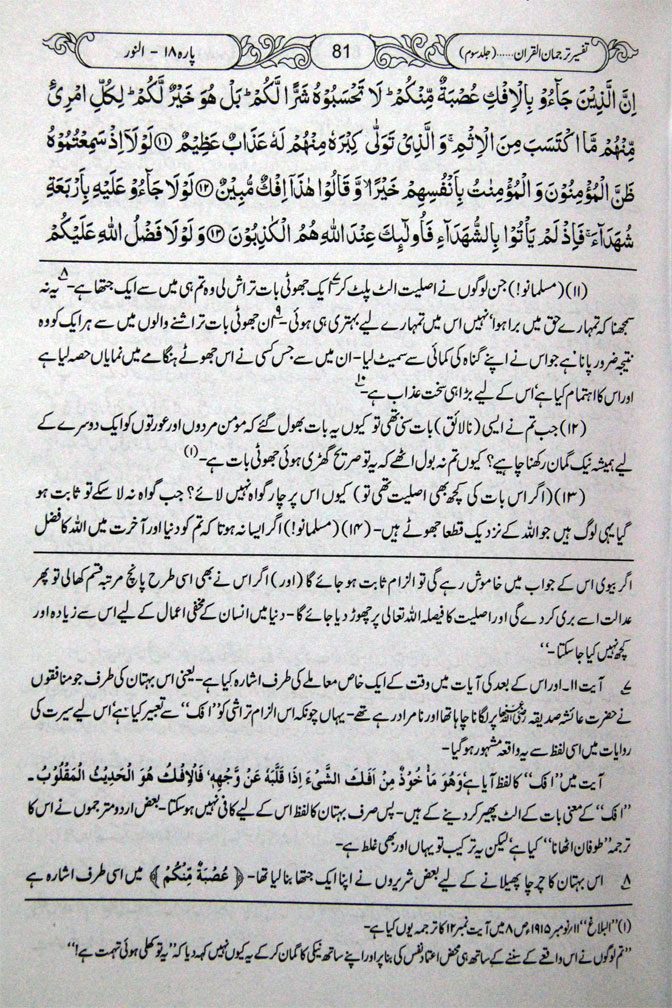 تفسیر ترجمان القرآن......(جلد سوم)
81
پارہ ۱۸ - النور
اِنَّ الَّذِيْنَ جَآءُوْ بِالْاِفْكِ عُصْبَةٌ مِّنْكُمْ ؕ لَا تَحْسَبُوْهُ شَرًّا لَّكُمْ ؕ بَلْ هُوَ خَيْرٌ لَّكُمْ ؕ لِكُلِّ امْرِئٍ
مِّنْهُمْ مَّا اكْتَسَبَ مِنَ الْاِثْمِ ۚ وَ الَّذِيْ تَوَلّٰى كِبْرَهٗ مِنْهُمْ لَهٗ عَذَابٌ عَظِيْمٌ ﴿۱۱﴾ لَوْ لَاۤ اِذْ سَمِعْتُمُوْهُ
ظَنَّ الْمُؤْمِنُوْنَ وَ الْمُؤْمِنٰتُ بِاَنْفُسِهِمْ خَيْرًا ۙ وَّ قَالُوْا هٰذَاۤ اِفْكٌ مُّبِيْنٌ ﴿۱۲﴾ لَوْ لَا جَآءُوْ عَلَيْهِ بِاَرْبَعَةِ
شُهَدَآءَ ۚ فَاِذْ لَمْ يَاْتُوْا بِالشُّهَدَآءِ فَاُولٰٓىِٕكَ عِنْدَ اللّٰهِ هُمُ الْكٰذِبُوْنَ ﴿۱۳﴾ وَ لَوْ لَا فَضْلُ اللّٰهِ عَلَيْكُمْ
(۱۱) (مسلمانو!) جن لوگوں نے اصلیت الٹ پلٹ کر ؎۷ ایک جھوٹی بات تراش لی وہ تم ہی میں سے ایک جتھا ہے- ؎۸ یہ نہ
سمجھنا کہ تمہارے حق میں برا ہوا' نہیں اس میں تمہارے لیے بہتری ہی ہوئی- ؎۹ ان جھوٹی بات تراشنے والوں میں سے ہر ایک کو وہ
نتیجہ ضرور پانا ہے جو اس نے اپنے گناہ کی کمائی سے سمیٹ لیا- ان میں سے جس کسی نے اس جھوٹے ہنگامے میں نمایاں حصہ لیا ہے
اور اس کا اہتمام کیا ہے' اس کے لیے بڑا ہی سخت عذاب ہے- ؎۱۰
(۱۲) جب تم نے ایسی (نالائق) بات سنی تھی تو کیوں یہ بات بھول گئے کہ مؤمن مردوں اور عورتوں کو ایک دوسرے کے
لیے ہمیشہ نیک گمان رکھنا چاہیے؟ کیوں تم نہ بول اٹھے کہ یہ تو صریح گھڑی ہوئی جھوٹی بات ہے- (۱)
(۱۳) (اگر اس بات کی کچھ بھی اصلیت تھی تو) کیوں اس پر چار گواہ نہیں لائے؟ جب گواہ نہ لا سکے تو ثابت ہو
گیا یہی لوگ ہیں جو اللہ کے نزدیک قطعا جھوٹے ہیں- (۱۴) (مسلمانو!) اگر ایسا نہ ہوتا کہ تم کو دنیا اور آخرت میں اللہ کا فضل
اگر بیوی اس کے جواب میں خاموش رہے گی تو الزام ثابت ہو جائے گا (اور) اگر اس نے بھی اسی طرح پانچ مرتبہ قسم کھالی تو پھر
عدالت اسے بری کر دے گی اور اصلیت کا فیصلہ اللہ تعالی پر چھوڑ دیا جائے گا- دنیا میں انسان کے مخفی اعمال کے لیے اس سے زیادہ اور
کچھ نہیں کیا جا سکتا-''
۷ آیت ۱۱- اور اس کے بعد کی آیات میں وقت کے ایک خاص معاملے کی طرف اشارہ کیا ہے- یعنی اس بہتان کی طرف جو منافقوں
نے حضرت عائشہ صدیقہ رضی اللہ عنہا پر لگانا چاہا تھا اور نامراد رہے تھے- یہاں چونکہ اس الزام تراشی کو ''افک'' سے تعبیر کیا ہے' اس لیے سیرت کی
روایات میں اسی لفظ سے یہ واقعہ مشہور ہو گیا-
آیت میں ''افک'' کا لفظ آیا ہے' وَهُوَ مَاْخُوْذٌ مِنْ اَفَكَ الشَّيْءَ اِذَا قَلَّبَهٗ عَنْ وَّجْهِهٖ، فَالْاِفْكُ هُوَ الْحَدِيْثُ الْمَقْلُوْبُ-
''افک'' کے معنی بات کے الٹ پھیر کر دینے کے ہیں- پس صرف بہتان کا لفظ اس کے لیے کافی نہیں ہو سکتا- بعض اردو مترجموں نے اس کا
ترجمہ ''طوفان اٹھانا'' کیا ہے' لیکن یہ ترکیب تو یہاں اور بھی غلط ہے-
۸ اس بہتان کا چرچا پھیلانے کے لیے بعض شریروں نے اپنا ایک جتھا بنا لیا تھا- ﴿ عُصْبَةٌ مِّنْكُمْ ﴾ میں اسی طرف اشارہ ہے
(۱) ''البلاغ'' ۱۱/ نومبر ۱۹۱۵ء' ص ۸ میں آیت نمبر ۱۲ کا ترجمہ یوں کیا ہے-
''تم لوگوں نے اس واقعے کے سننے کے ساتھ ہی محض اعتماد نفس کی بنا پر اور اپنے ساتھ نیکی کا گمان کر کے یہ کیوں نہیں کہہ دیا کہ ''یہ تو کھلی ہوئی تہمت ہے!''